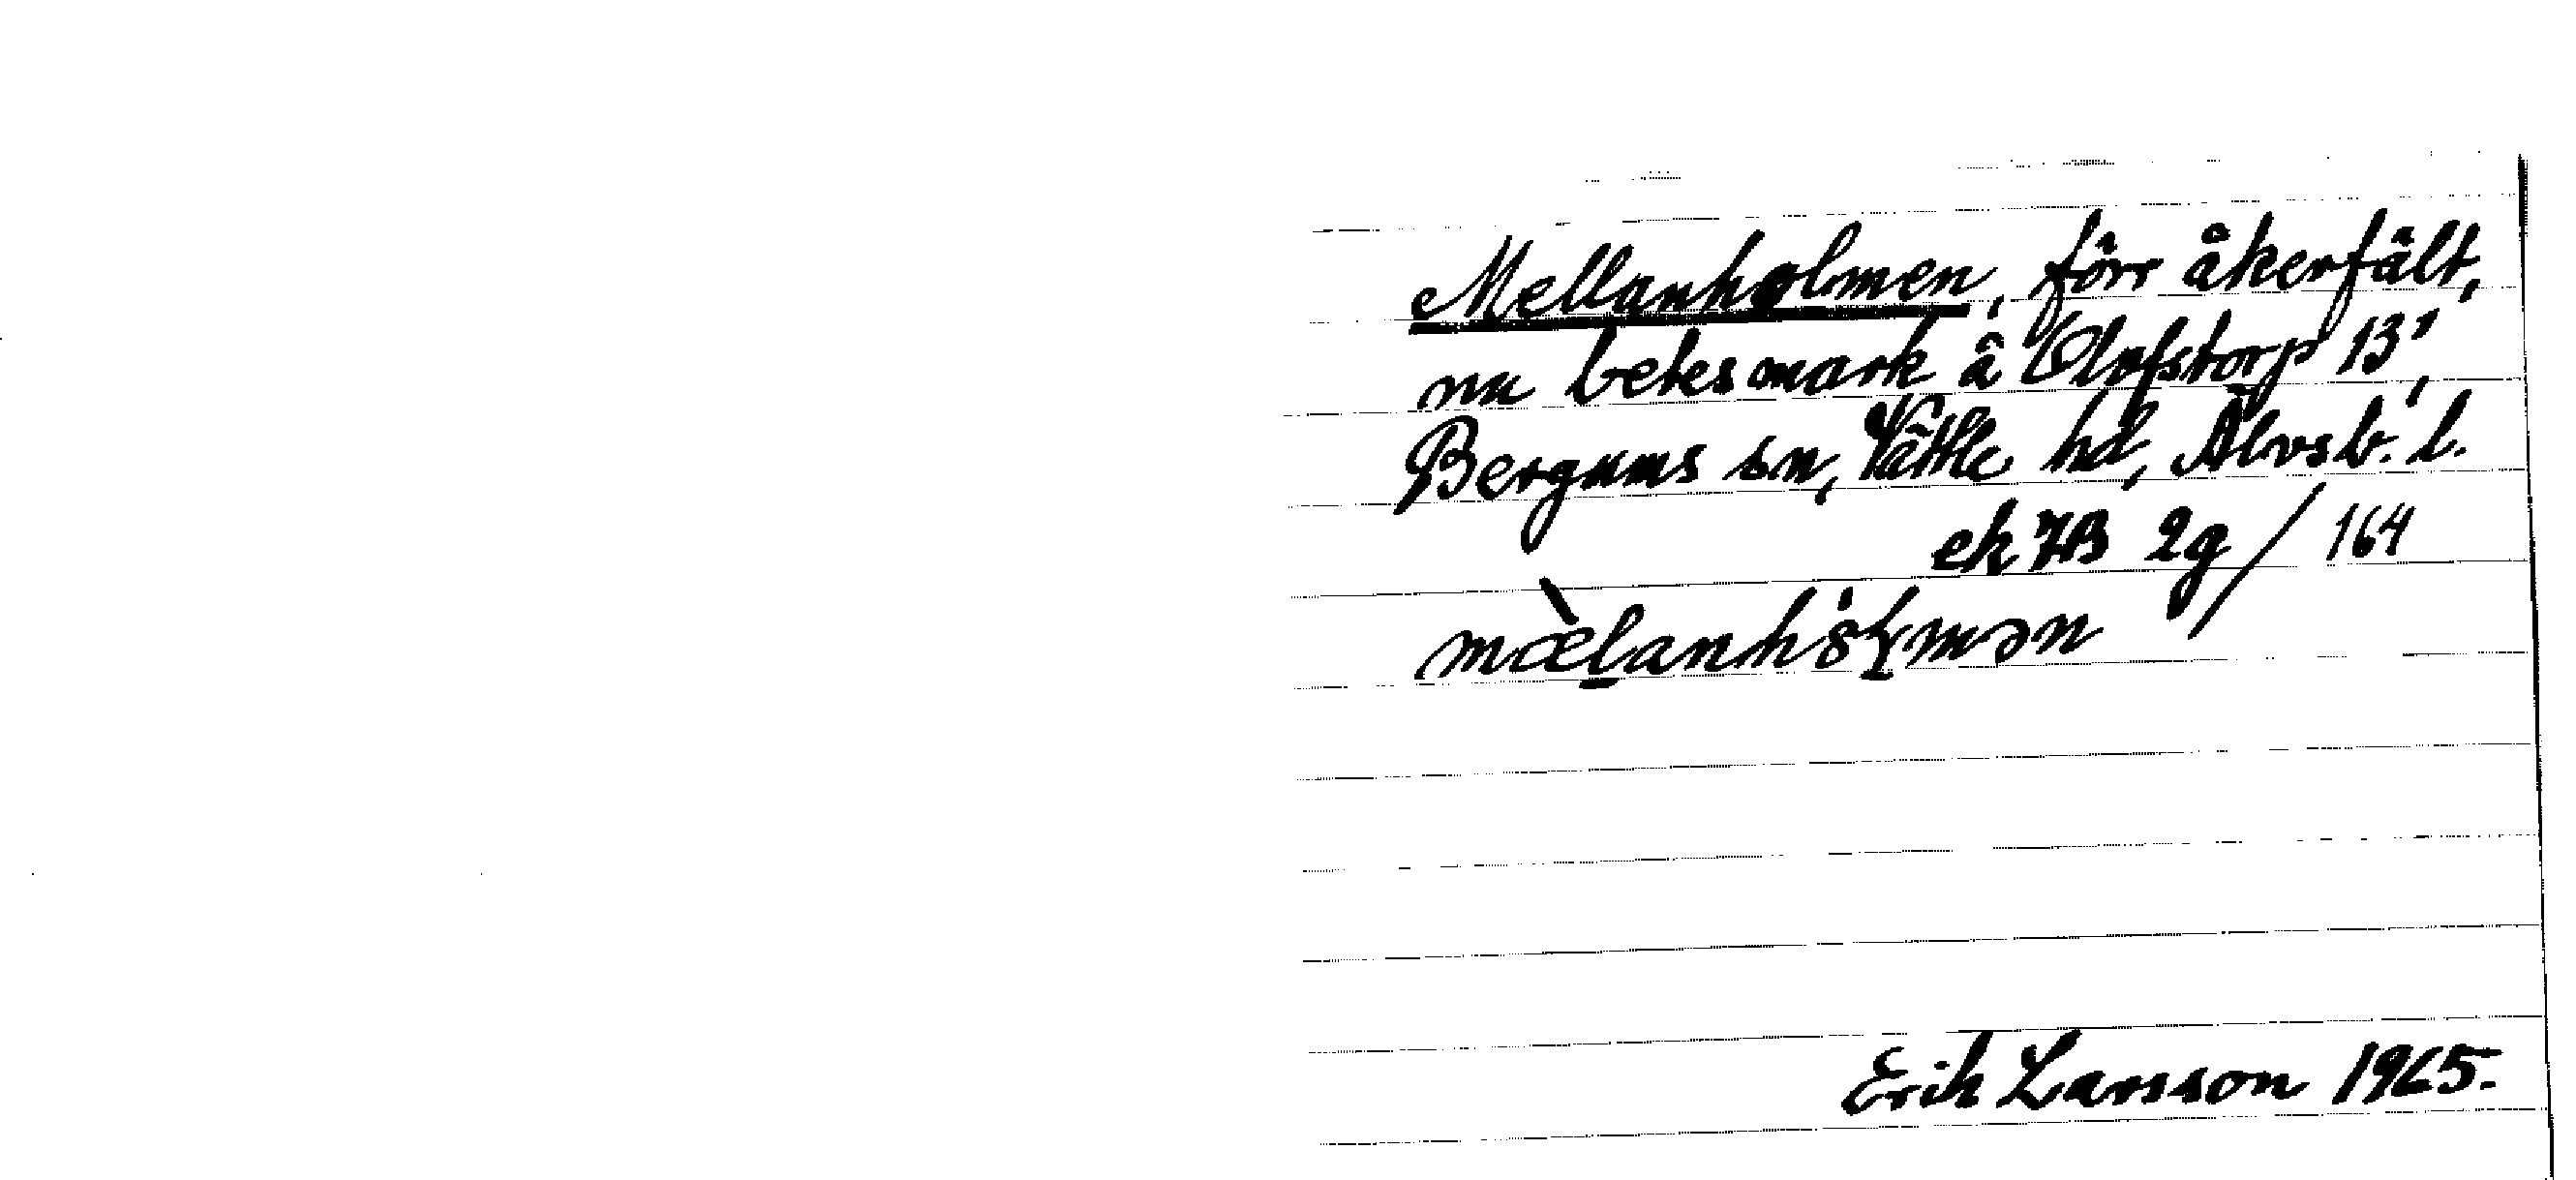 Mellanholmen, förr åkerfält,
nu betesmark å Olofstorp 13¹,
Bergums sn, Vättle hd, Älvsb. l.
ek 7B 2g / 164
Erik Larsson 1965.